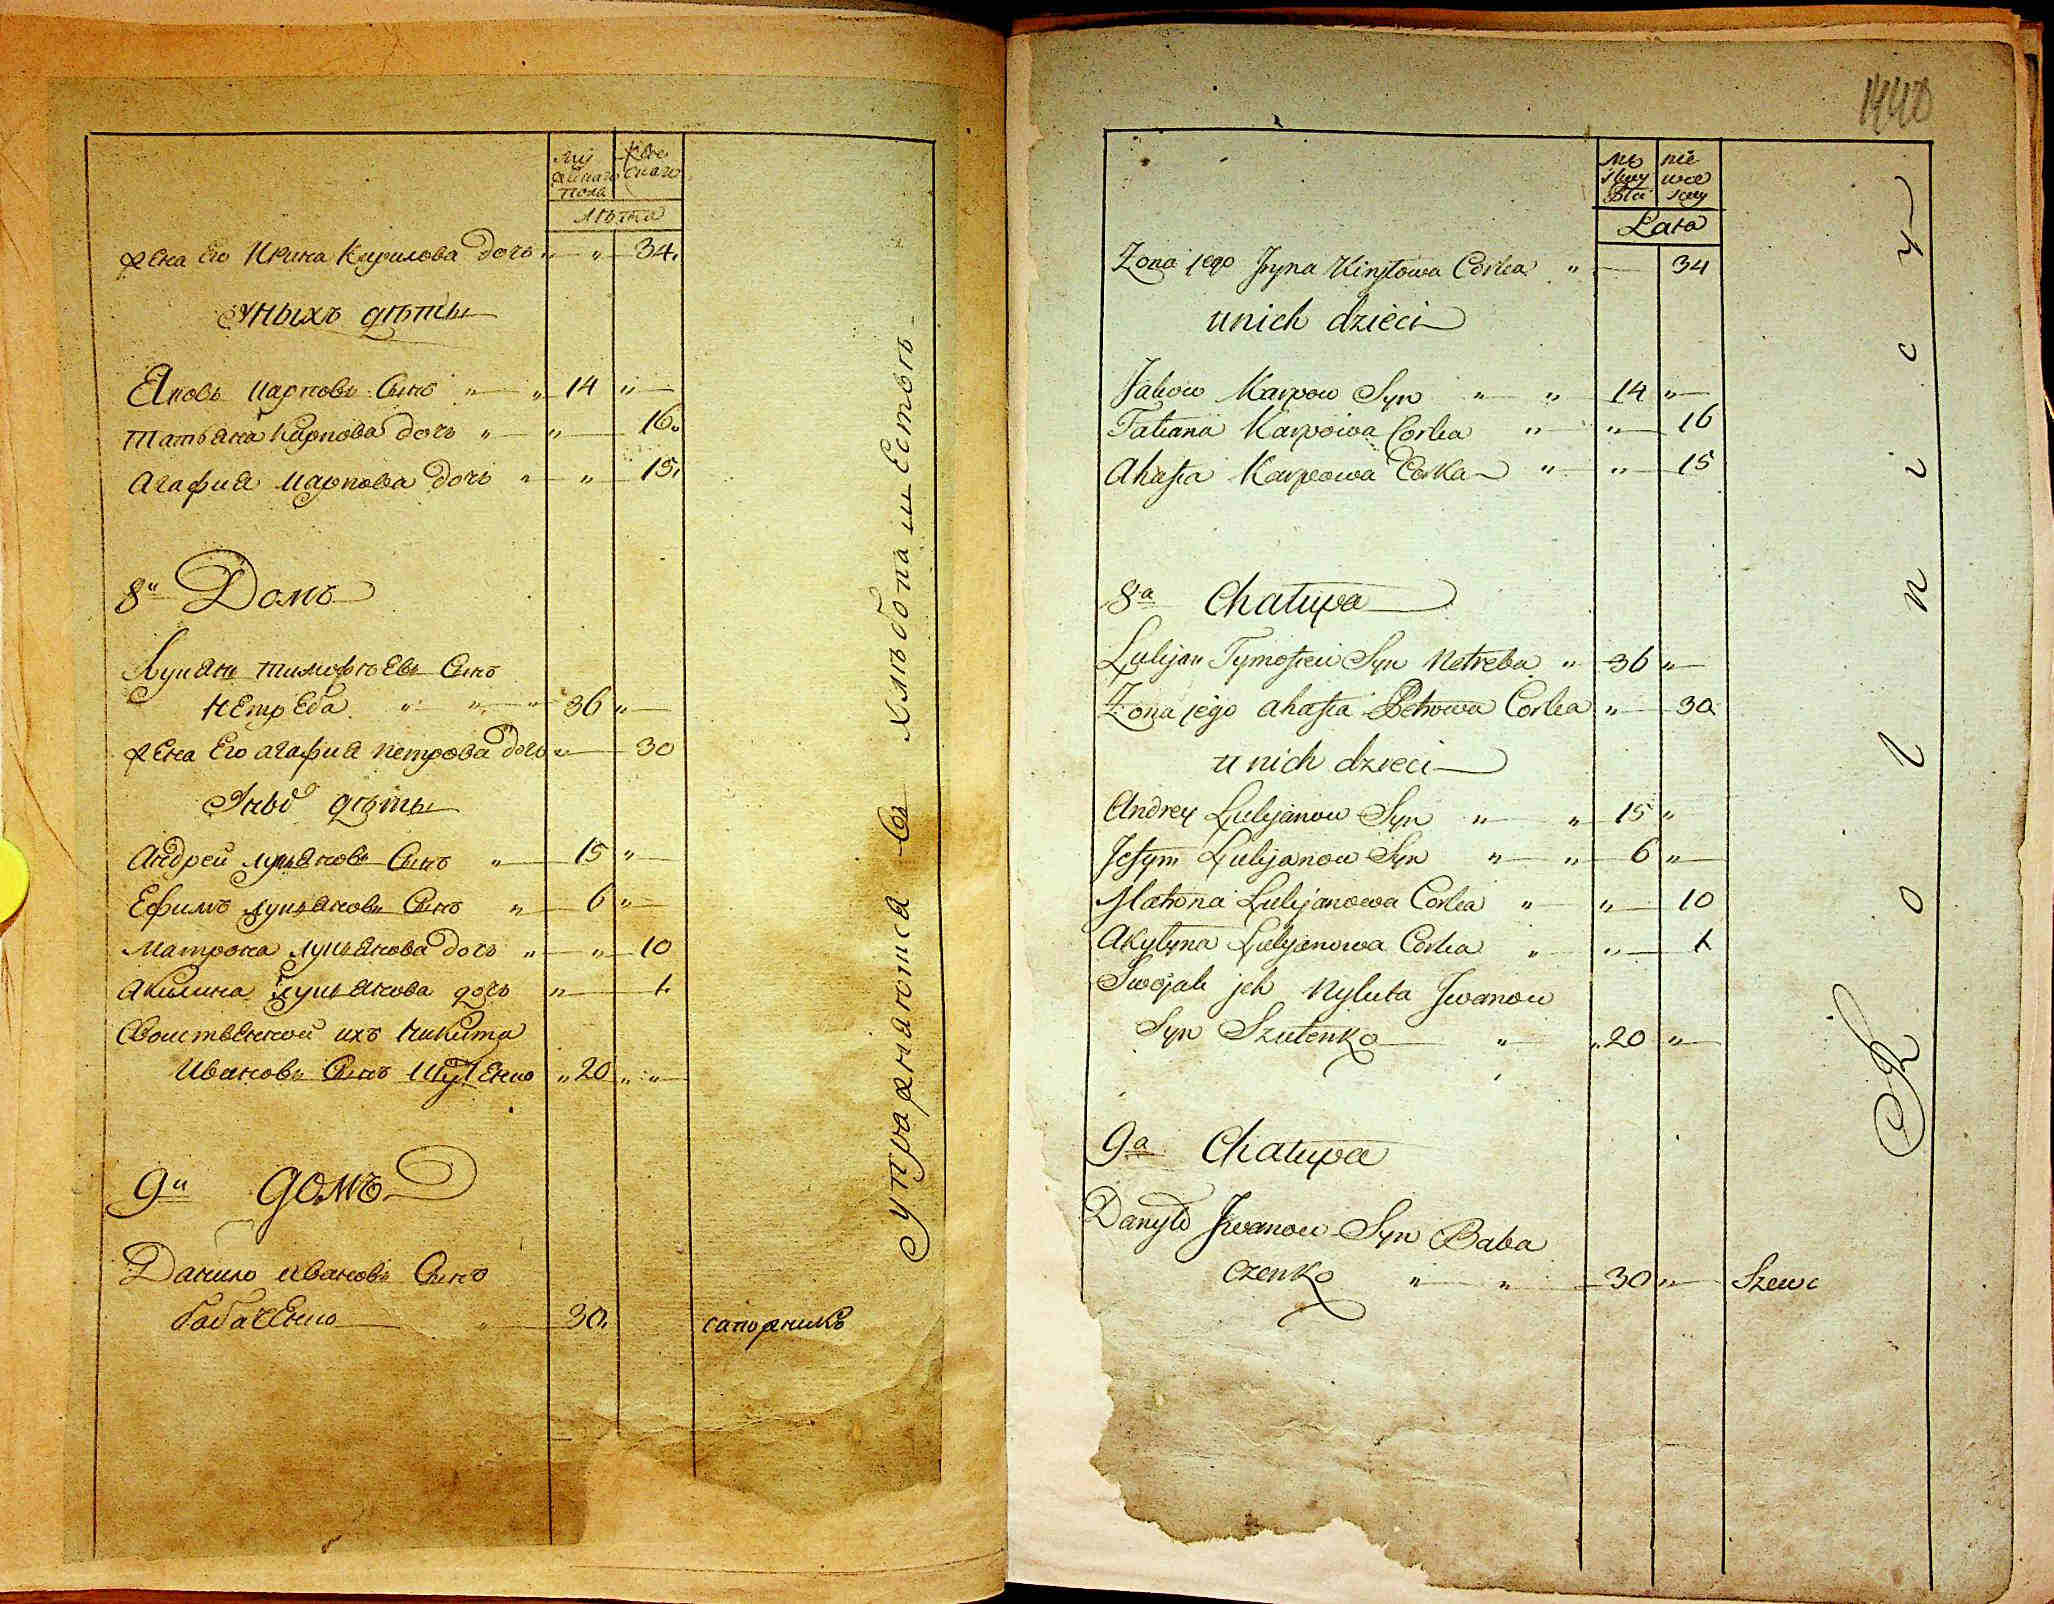 Муж Жен
ескаго скаго
пола
Лѣта
жена Его Ирина Кирилова дочь " " 34.
Уныхъ дѣти
Яковъ Карповъ Сынъ " " 14 "
Татьяна Карпова дочь " " 16.
Агафия Карпова дочь " " 15.
8й Домъ
Лукянъ тимофѣевъ Сынъ
нетреба " " " 36 "
жена Его агафия петрова дочь " 30
Уныхъ дѣти
Андрей лукьяновъ Сынъ " 15 "
Ефимъ лукьяновъ Сынъ " 6 "
матрона лукьянова дочь " " 10
Акилина лукьянова дочь " 1.
Своиственной ихъ Никита
Ивановъ Сынъ Шутенко " 20 " "
9й домъ
Данило ивановъ Сынъ
бабаченко " 30. сапожникъ
Упражняютса въ хлѣбопашествѣ
1440
mę nie
skiey wie
Płci sciey
Lata
Żona jego Iryna Kiryłowa Corka " 34
unich dzieci
Jakow Karpow Syn " " 14 "
Tatiana Karpowa Corka " " 16
Ahafia Karpowa Corka " " 15
8a Chałupa
Łukjan Tymofieiu Syn Netreba " 36 "
Żona jego ahafia Petrowa Corka " 30
unich dzieci
Andrey Łukjanow Syn " " 15 "
Jefym Łukjanow Syn " " 6 "
Matrona Łukjanowa Corka " " 10
Akylyna Łukjanowa Corka " " 1
Swojak jch Nykita Jwanow
Syn Szutenko " " 20 "
9a Chałupa
Danyło Jwanow Syn Baba
czenko " " 30 " Szewc
Rolnicy